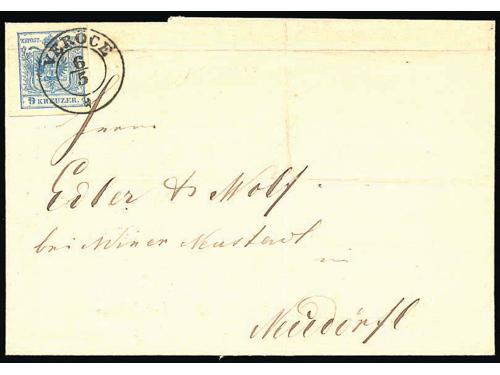 KKPOST-
VERŐCE
6/5
9 KREUZER.
Herrn
Edler & Wolf
bei Wiener Neustadt
in
Neudörfl